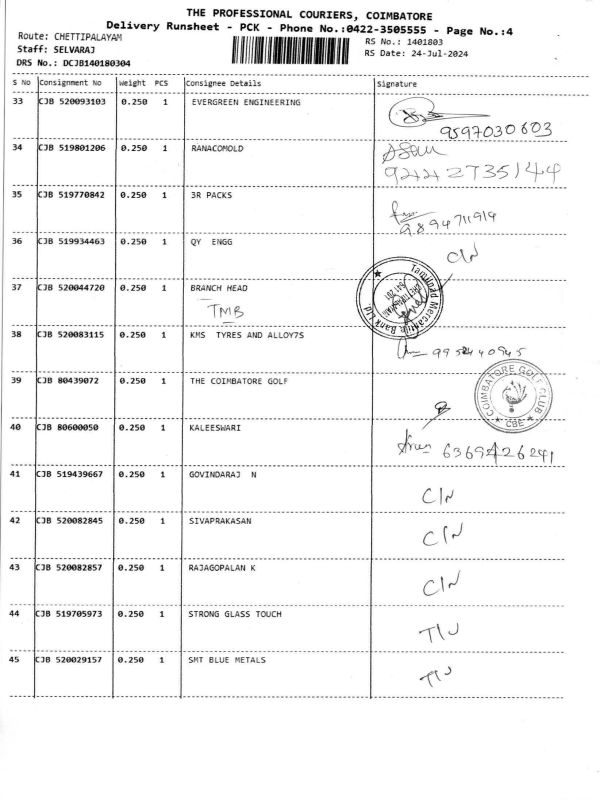 THE PROFESSIONAL COURIERS, COIMBATORE
Delivery Runsheet - PCK - Phone No.:0422-3505555 - Page No.:4
Route: CHETTIPALAYAM
RS No.: 1401803
Staff: SELVARAJ
RS Date: 24-Jul-2024
DRS No.: DCJB140180304
S No Consignment No Weight PCS Consignee Details Signature
33 CJB 520093103 0.250 1 EVERGREEN ENGINEERING
9597030603
34 CJB 519801206 0.250 1 RANACOMOLD
9442735144
35 CJB 519770842 0.250 1 3R PACKS
9894711914
36 CJB 519934463 0.250 1 QY ENGG C/N
37 CJB 520044720 0.250 1 BRANCH HEAD
TMB
Tamilnad Mercantile Bank Ltd
38 CJB 520083115 0.250 1 KMS TYRES AND ALLOY7S
39 CJB 80439072 0.250 1 THE COIMBATORE GOLF
COIMBATORE GOLF CLUB
CBE
40 CJB 80600050 0.250 1 KALEESWARI
6369426241
41 CJB 519439667 0.250 1 GOVINDARAJ N C/N
42 CJB 520082845 0.250 1 SIVAPRAKASAN C/N
43 CJB 520082857 0.250 1 RAJAGOPALAN K C/N
44 CJB 519705973 0.250 1 STRONG GLASS TOUCH
45 CJB 520029157 0.250 1 SMT BLUE METALS